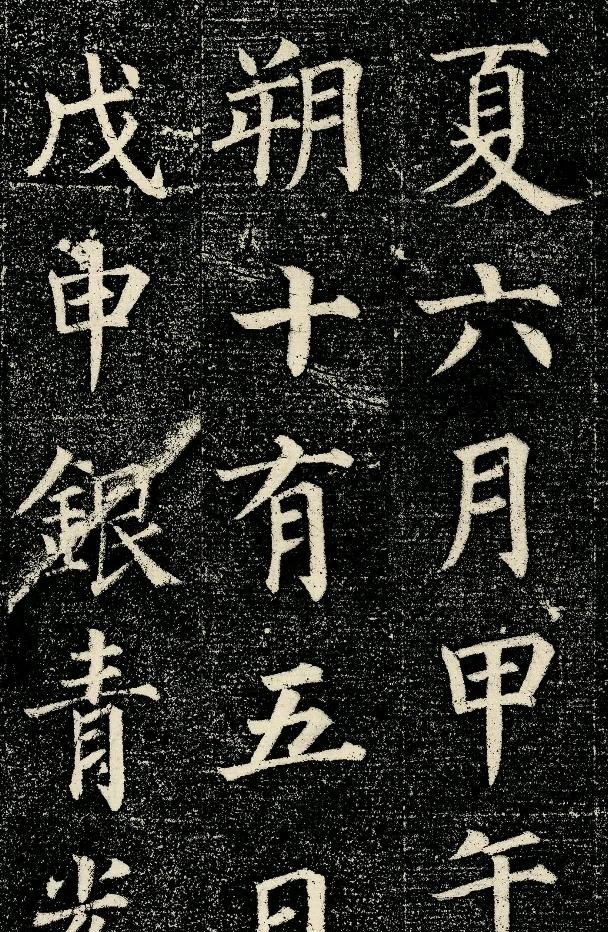 夏六月甲午
朔十有五日
戊申銀青光